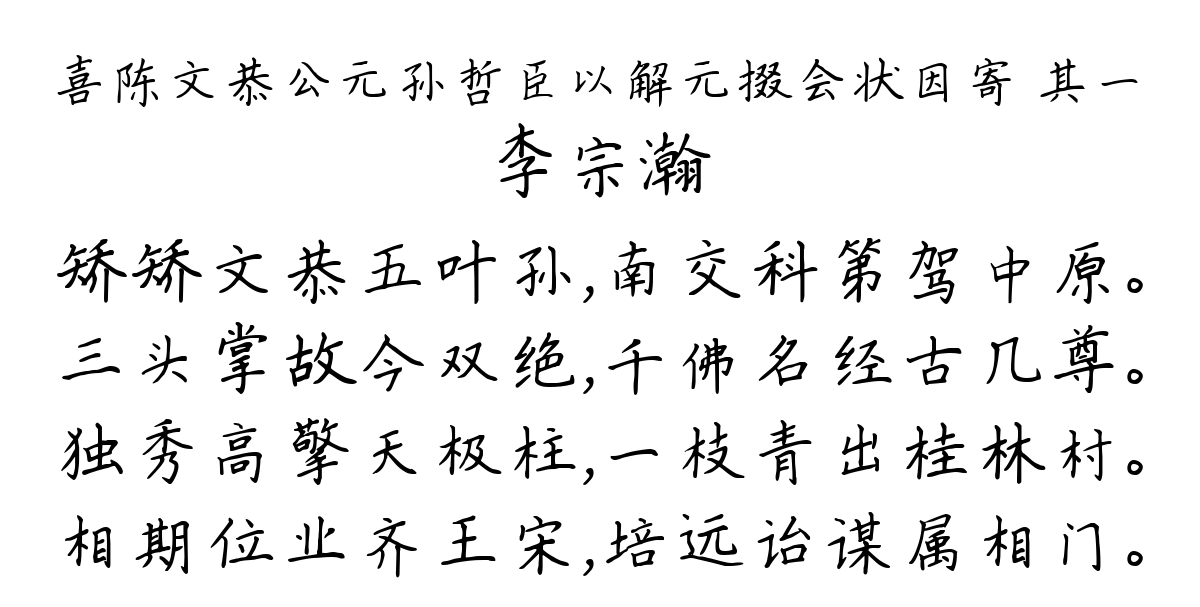 喜陈文恭公元孙哲臣以解元掇会状因寄 其一
李宗瀚
矫矫文恭五叶孙,南交科第驾中原。
三头掌故今双绝,千佛名经古几尊。
独秀高擎天极柱,一枝青出桂林村。
相期位业齐王宋,培远诒谋属相门。